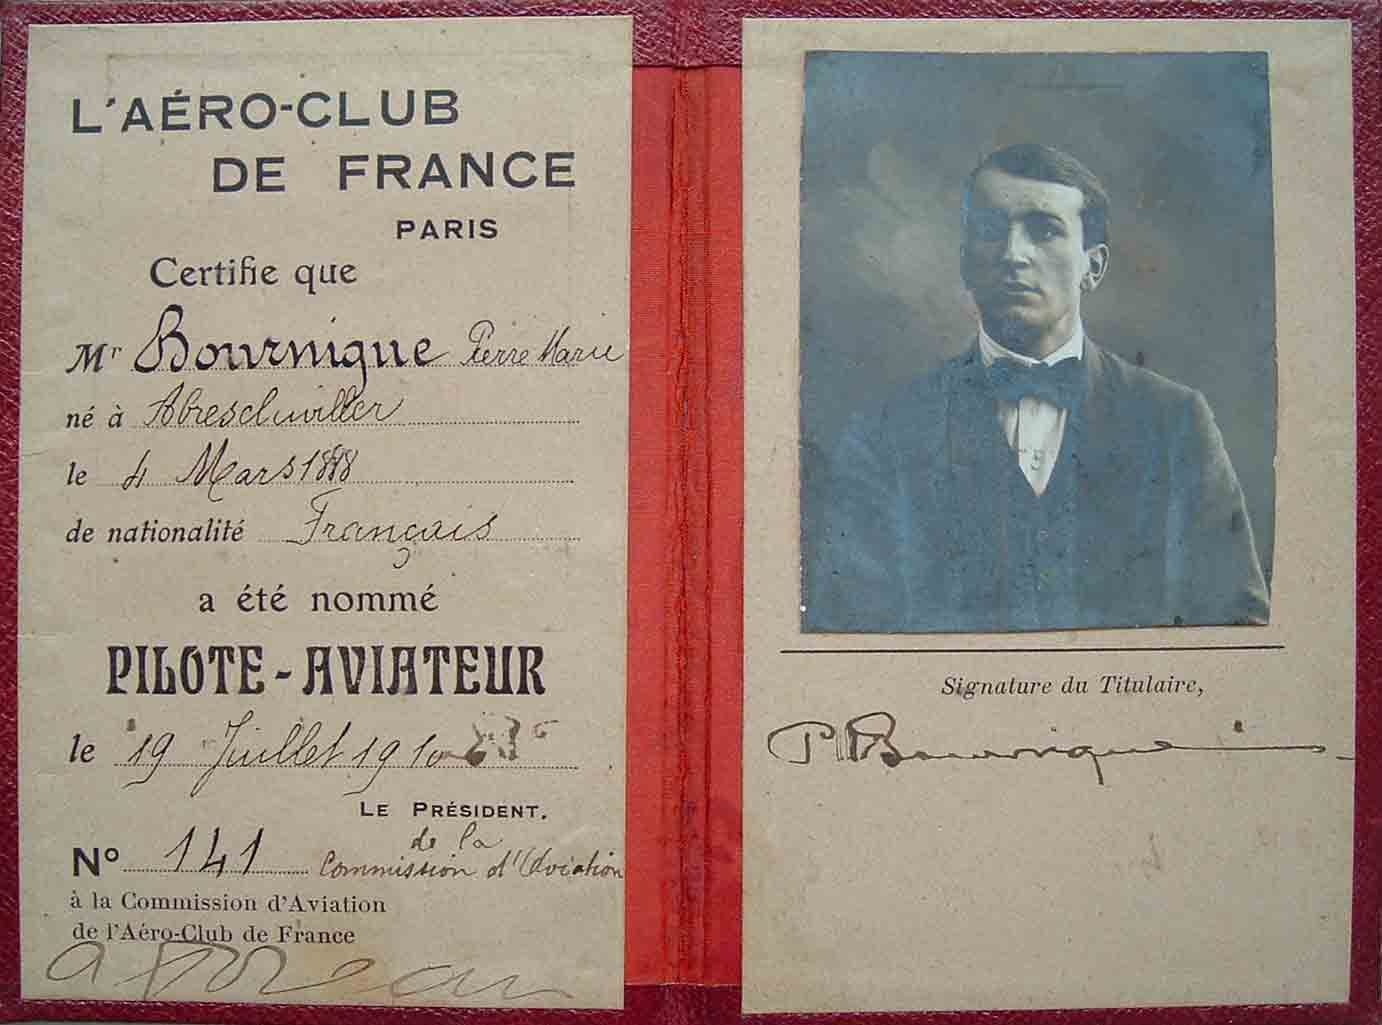 L'AÉRO-CLUB
DE FRANCE
PARIS
Certifie que
Mr Bournique Pierre Marie
né à Abreschwiller
le 4 Mars 1888
de nationalité Français
a été nommé
PILOTE-AVIATEUR
le 19 Juillet 1910
LE PRÉSIDENT.
de la
No 141 Commission d'Aviation
à la Commission d'Aviation
de l'Aéro-Club de France
Signature du Titulaire,
P M Bournique